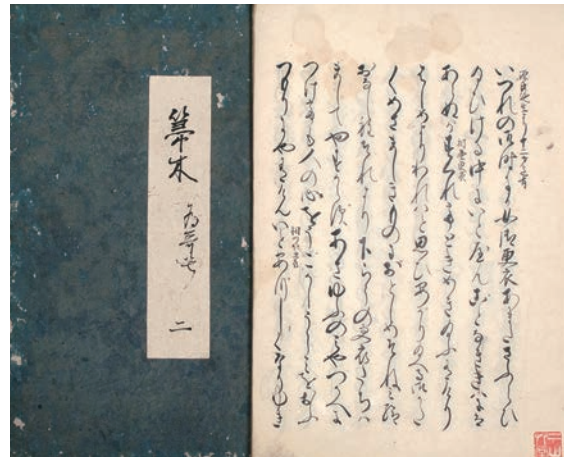 いつれの御時にか女御更衣あまたさふらひ
給ひける中にいとやんことなききはには
あらぬかすくれてときめき給ふありけり
はしめよりわれはと思ひあかり給へる御かた
くめさましきものにおとしめそねみ給
おなしほとそれより下らうの更衣たちは
ましてやすからすあさゆふのみやつかへに
つけても人の心をうこかしうらみをおふ
つもりにやありけんいとあつしくなりゆき
箒木
二